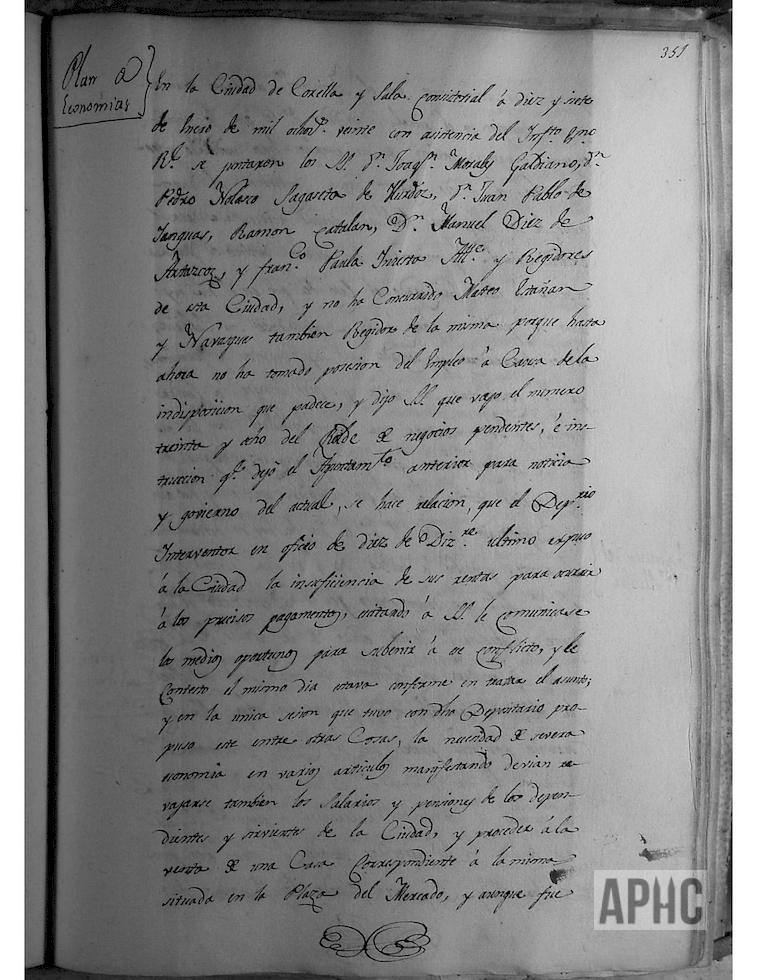 351
Plan de
Economias
En la Ciudad de Corella y Sala consistorial á diez y siete
de Enero de mil ochos. veinte con asistencia del Infto. Esno.
Rl. se juntaron los SS. Dn. Joaqn. Morales Galdiano, Dn.
Pedro Nolasco Sagaseta de Ilurdoz, Dn. Juan Pablo de
Yanguas, Ramon Catalan, Dn. Manuel Diez de
Artazcoz, y franco. Paula Alle. y Regidores
de esta Ciudad, y no ha Concurrido Matteo
y Navasques tambien Regidor de la misma porque hasta
ahora no ha tomado posesion del Empleo á Causa de la
indisposicion que padece, y dijo SS. que vajo el numero
treinta y ocho del Rolde de negocios pendentes, é ins-
truccion qe. dejó el Aiuntamto. anterior para noticia
y govierno del actual, se hace relacion, que el Deprio.
Interventor en oficio de diez de Dizre. ultimo expuso
á la Ciudad la insuficiencia de sus rentas para ocurrir
á los precisos pagamentos, excitando á SS. le comunicase
los medios oportunos para subenir á ese conflicto, y le
Contesto el mismo dia estava conforme en tratar el asunto;
y en la unica sesion que tuvo con dho Depositario pro-
puso este entre otras Cosas, la necesidad de severa
economia en varios articulos manifestando devian re-
vajarse tambien los Salarios y pensiones de los depen-
dientes y sirvientes de la Ciudad, y proceder á la
venta de una Casa Correspondiente á la misma
situada en la Plaza del Mercado, y aunque fue
APHC